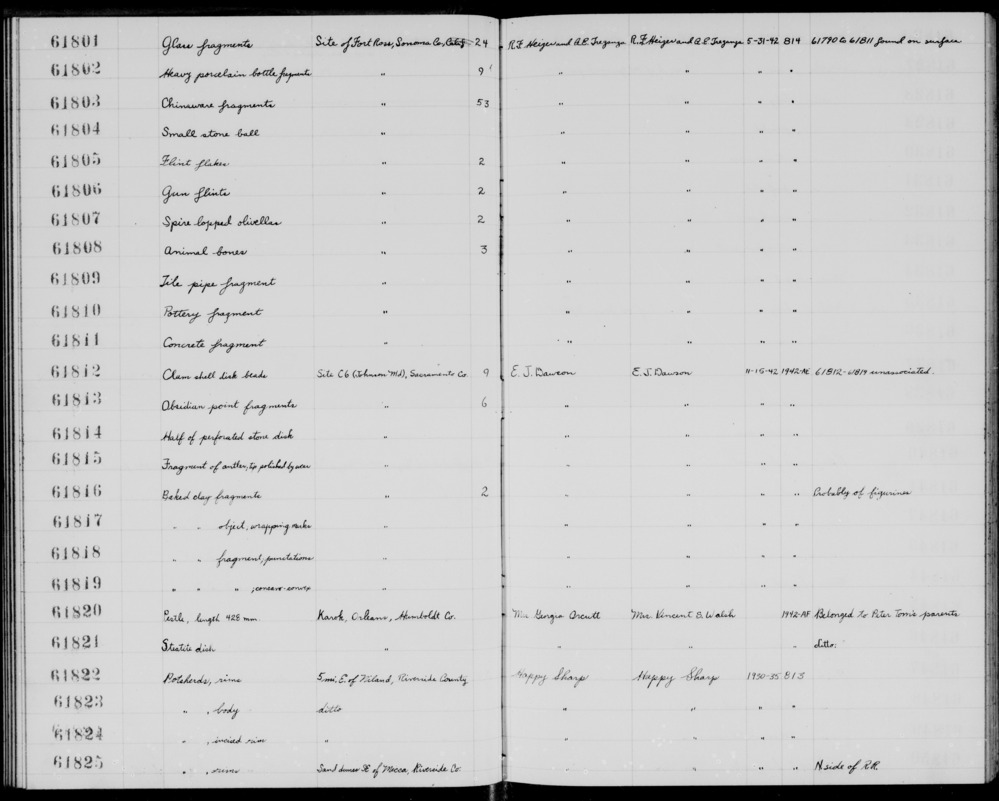 61801 Glass fragments Site of Fort Ross, Sonoma Co, Calif 24 R.F. Heizer and A.E. Treganza R.F. Heizer and A.E. Treganza 5-31-42 814 61790 to 61811 found on surface
61802 Heavy porcelain bottle fragments " 9 " " " "
61803 Chinaware fragments " 53 " " " "
61804 Small stone ball " " " " "
61805 Flint flakes " 2 " " " "
61806 Gun flints " 2 " " " "
61807 Spire lopped olivellas " 2 " " " "
61808 Animal bones " 3 " " " "
61809 Tile pipe fragment " " " " "
61810 Pottery fragment " " " " "
61811 Concrete fragment " " " " "
61812 Clam shell disk beads Site C6 (Johnson Md), Sacramento Co. 9 E.J. Dawson E.J. Dawson 11-15-42 1942-AE 61812-61819 unassociated.
61813 Obsidian point fragments " 6 " " " "
61814 Half of perforated stone disk " " " " "
61815 Fragment of antler, tip polished by wear " " " " "
61816 Baked clay fragments " 2 " " " " Probably of figurines
61817 " " object, wrapping marks " " " " "
61818 " " fragment, punctations " " " " "
61819 " " " , concave-convex " " " " "
61820 Pestle, length 428 mm. Karok, Orleans, Humboldt Co. Georgia Orcutt Mrs. Vincent S. Walsh 1942-AF Belonged to Peter Tom's parents
61821 Steatite dish " " " " ditto.
61822 Potsherds, rims 5 mi. E. of Niland, Riverside County Happy Sharp Happy Sharp 1930-35 815
61823 " , body ditto " " " "
61824 " , incised rim " " " " "
61825 " , rims Sand dunes SE of Mecca, Riverside Co. " " " " N side of R.R.